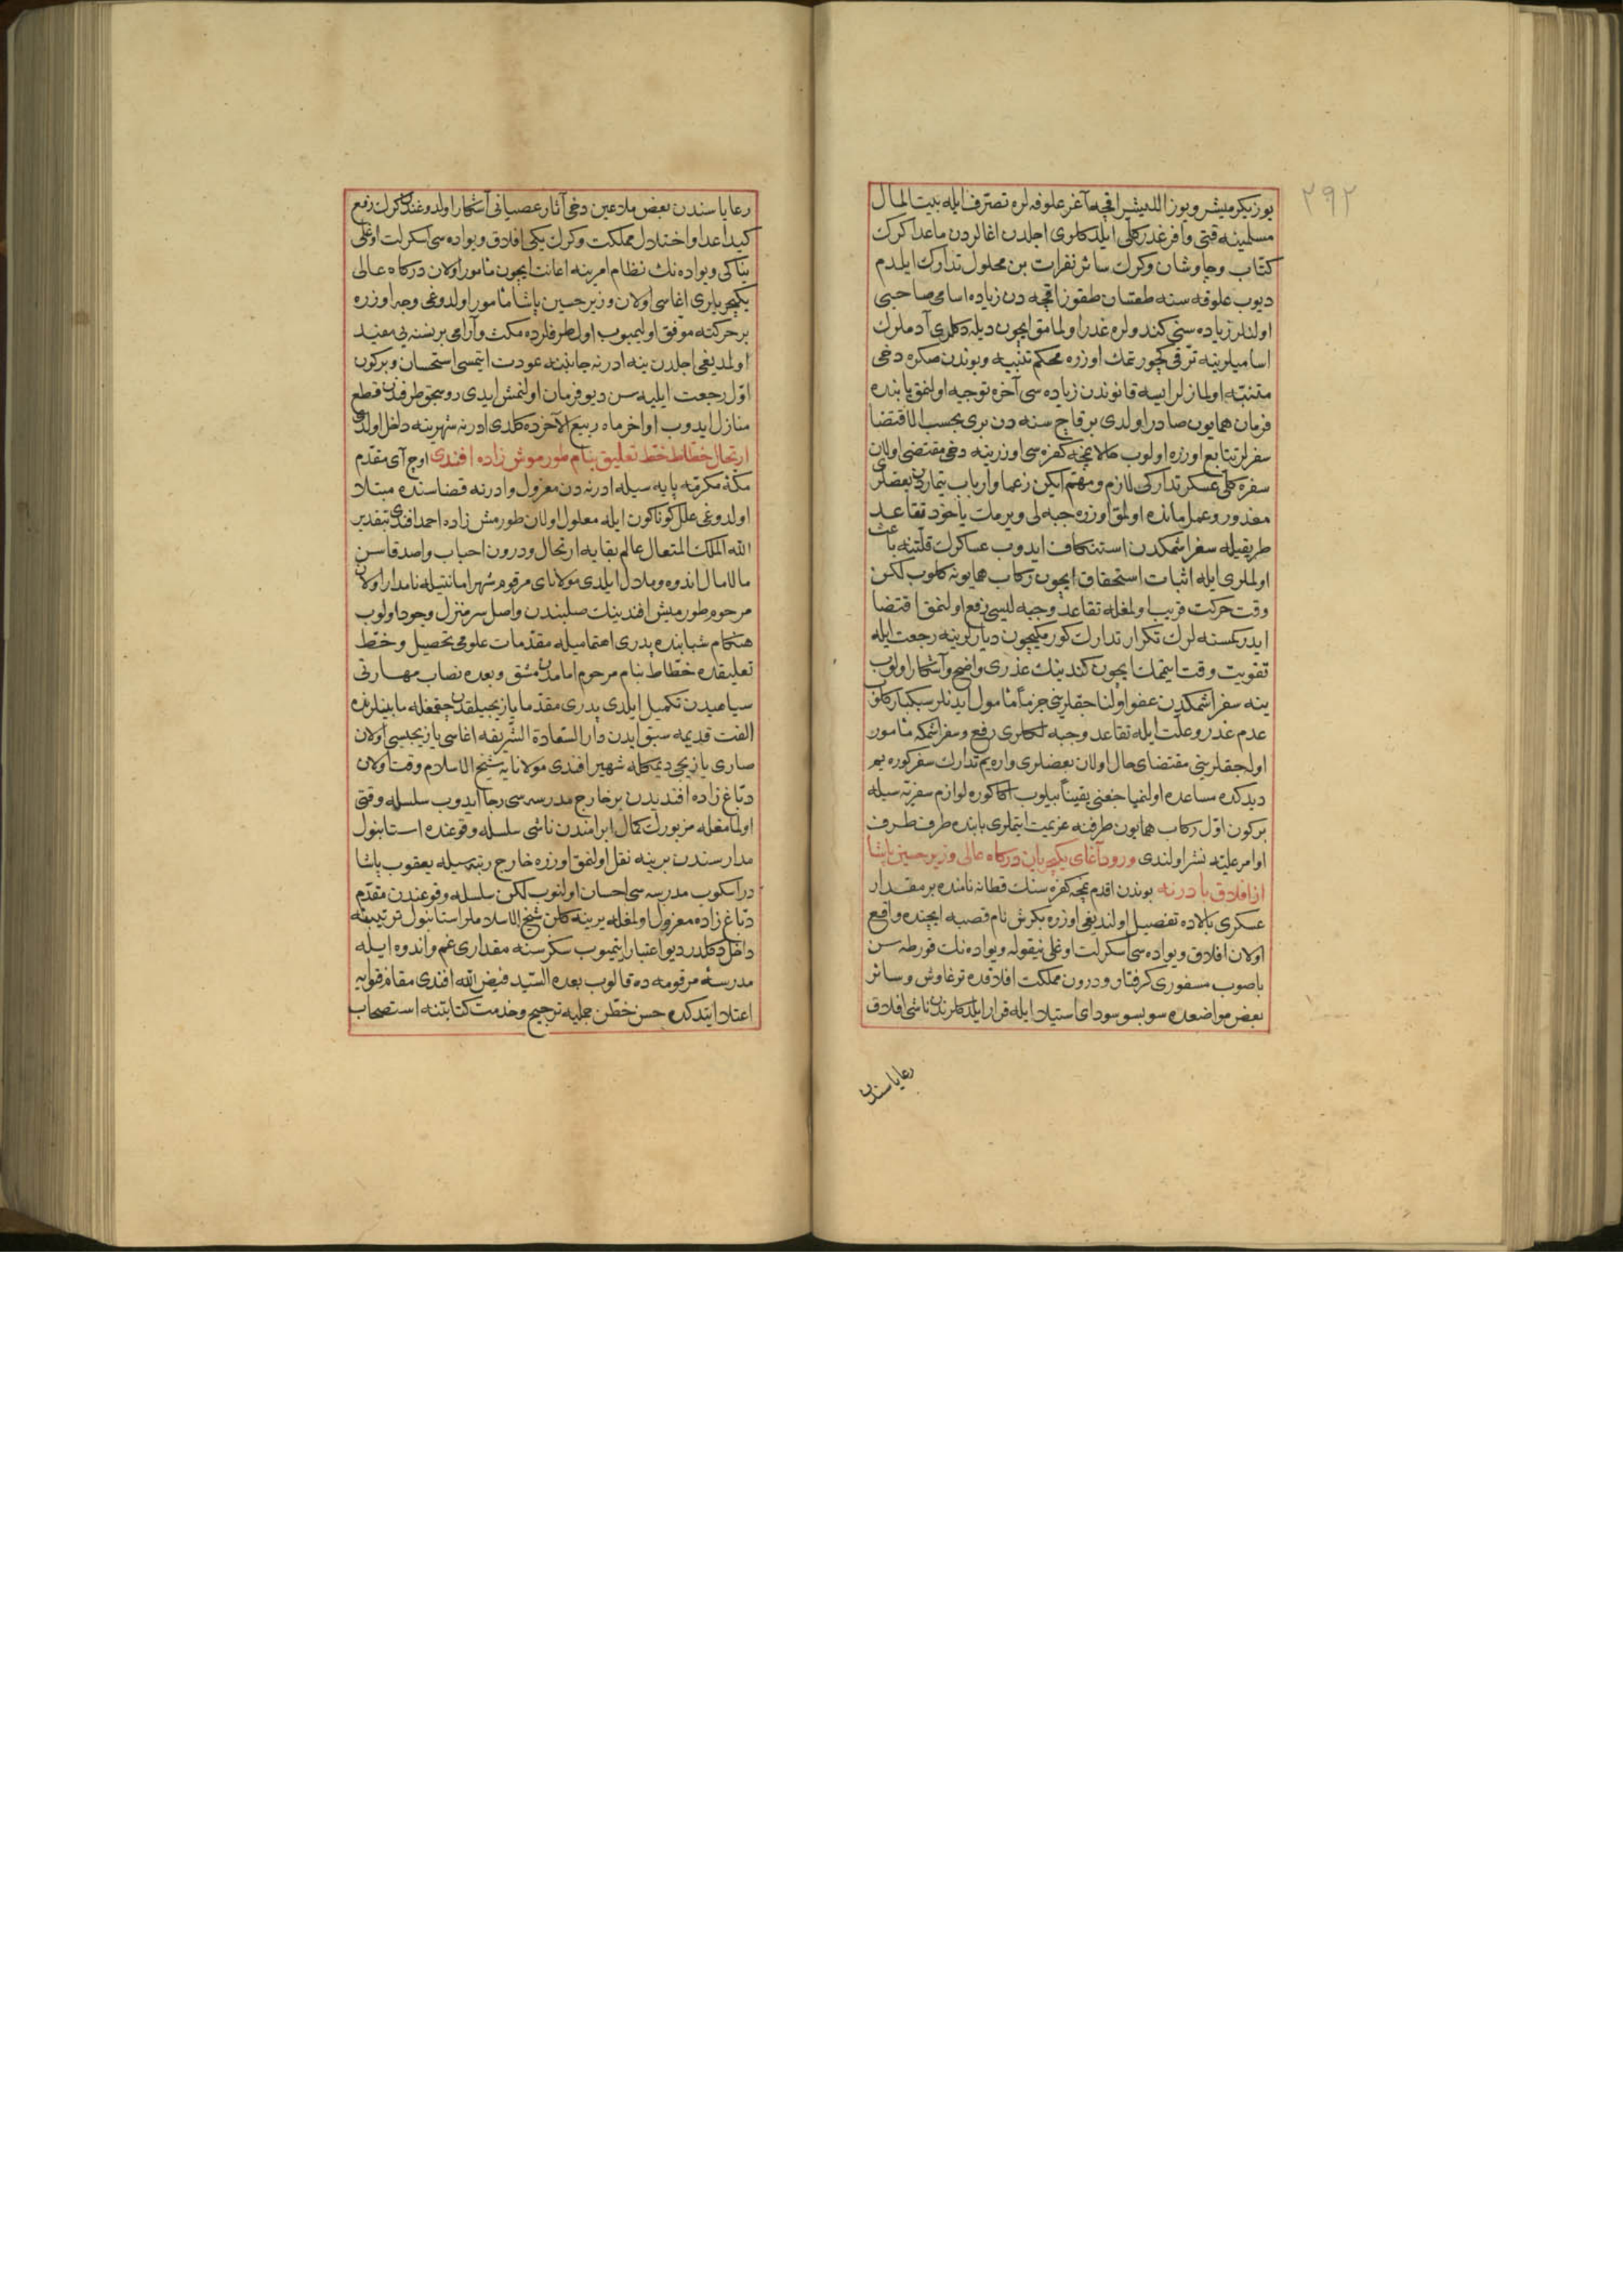 ٢٩٢
یوز یكرمیشر و یوز اللیشر اقچه آغر علوفه لره تصرف ایله بیت المال
مسلمینه قتی وافر غدر كلی ایلدكلری اجلدن اغالردن ماعدا كرك
كتاب و چاوشان و كرك سائر نفرات بن محلول تدارك ایلدم
دیوب علوفه سنه طقسان طقوز اقچه دن زیاده اسامی صاحبی
اولنلر زیاده سنی كندولره غدر اولمامق ایچون دیله دكلری آدملرك
اسامیلرینه ترقی كچورتمك اوزره محكم تنبیه و بوندن صكره دخی
متنبه اولمازلر ایسه قانوندن زیاده سی آخره توجیه اولنمق بابنده
فرمان همایون صادر اولدی بر قاچ سنه دن بری بحسب الاقتضا
سفرلر تتابع اوزره اولوب حالا نیچه كفره سی اوزرینه دخی مقتضی اولان
سفره كلی عسكر تداركی لازم و مهم ایكن زعما و ارباب تیماردن بعضلری
معذور و عمل مانده اولمق اوزره جبه لی ویرمك یاخود تقاعد
طریقیله سفر اشمكدن استنكاف ایدوب عساكرك قلتنه باعث
اولملری ایله اثبات استحقاق ایچون ركاب همایونه كلوب لكن
وقت حركت قریب اولمغله تقاعد و جبه لیسی رفع اولنمق اقتضا
ایدر كمسنه لرك تكرار تدارك كورمكیچون دیارلرینه رجعت ایله
تفویت وقت ایتمك ایچون كندینك عذری واضح و آشكار اولوب
ینه سفر اشمكدن عفو اولناجقلرینی جزما مأمول ایدنلر سبكبار كلوب
عدم غدر و علت ایله تقاعد و جبه لكلری رفع و سفر اشمكه مأمور
اولاجقلرینی مقتضای حال اولان بعضلری واره یم تدارك سفر كوره یم
دیدكده مساعده اولنمیاجغنی یقینا بیلوب اكا كوره لوازم سفریه سیله
بر كون اول ركاب همایون طرفنه عزیمت ایتملری بابنده طرف طرف
اوامر علیه نشر اولندی ورود آغای یكیچریان دركاه عالی وزیر حسین پاشا
از افلاق بادرنه بوندن اقدم نمچه كفره سنك قطانه نامنده بر مقدار
عسكری بالاده تفصیل اولندیغی اوزره بكرش نام قصبه ایچنده واقع
اولان افلاق ویواده سی اسكرلت اوغلی نیقوله ویواده نك قورطه سن
باصوب مسفوری كرفتار و درون مملكت افلاقده ترغاوش و سائر
بعض مواضعده سوبسو سودای استیلا ایله قرار ایلدكلرندن ناشی افلاق
رعایاسندن
رعایاسندن بعض ملاعین دخی آثار عصیانی آشكار اولدوغندن كرك رفع
كید اعدا و اختلال مملكت و كرك یكی افلاق ویواده سی اسكرلت اوغلی
یناكی ویواده نك نظام امرینه اعانت ایچون مأمور اولان دركاه عالی
یكیچریلری اغاسی اولان وزیر حسین پاشا مأمور اولدوغی وجه اوزره
بر حركته موفق اولیمیوب اول طرفلرده مكث و آرامی بر نسنه یی مفید
اولمدیغی اجلدن ینه ادرنه جانبنه عودت ایتمسی استحسان و بر كون
اول رجعت ایلیه سن دیو فرمان اولنمش ایدی روسجق طرفندن قطع
منازل ایدوب اواخر ماه ربیع الآخرده كلدی ادرنه شهرینه داخل اولدی
ارتحال خطاط خط تعلیق بنام طورموش زاده افندی اوج آی مقدم
مكه مكرمه پایه سیله ادرنه دن معزول و ادرنه قضاسنده مبتلا
اولدوغی علل كوناكون ایله معلول اولان طورمش زاده احمد افندی بتقدیر
الله الملك المتعال عالم بقایه ارتحال و درون احباب و اصدقاسن
مالامال اندوه و ملال ایلدی مولانای مرقوم شهر امانتیله نامدار اولان
مرحوم طورمیش افندینك صلبندن واصل سرمنزل وجود اولوب
هنكام شبابنده پدری اهتمامیله مقدمات علومی تحصیل و خط
تعلیقده خطاط بنام مرحوم امامدن مشق و بعده نصاب مهارتی
سیاهیدن تكمیل ایلدی پدری مقدما یازیجیلقدن چقمغله مابینلرنده
الفت قدیمه سبق ایدن دار السعادة الشریفه اغاسی یازیجیسی اولان
صاری یازیجی دیمكله شهیر افندی مولانایه شیخ الاسلام وقت اولان
دباغ زاده افندیدن بر خارج مدرسه سی رجا ایدوب سلسله وقتی
اولمامغله مزبورك كمال ابرامندن ناشی سلسله وقوعنده استانبول
مدارسندن برینه نقل اولنمق اوزره خارج رتبه سیله یعقوب پاشا
در اسكوب مدرسه سی احسان اولنوب لكن سلسله وقوعندن مقدم
دباغ زاده معزول اولمغله یرینه كلن شیخ الاسلاملر استانبول ترتیبنه
داخل دكلدر دیو اعتبار ایتمیوب سكز سنه مقداری غم و اندوه ایله
مدرسه مرقومه ده قالوب بعده السید فیض الله افندی مقام فتوایه
اعتلا ایتدكده حسن خطن جملیه ترجیح و خدمت كتابتنه استصحاب